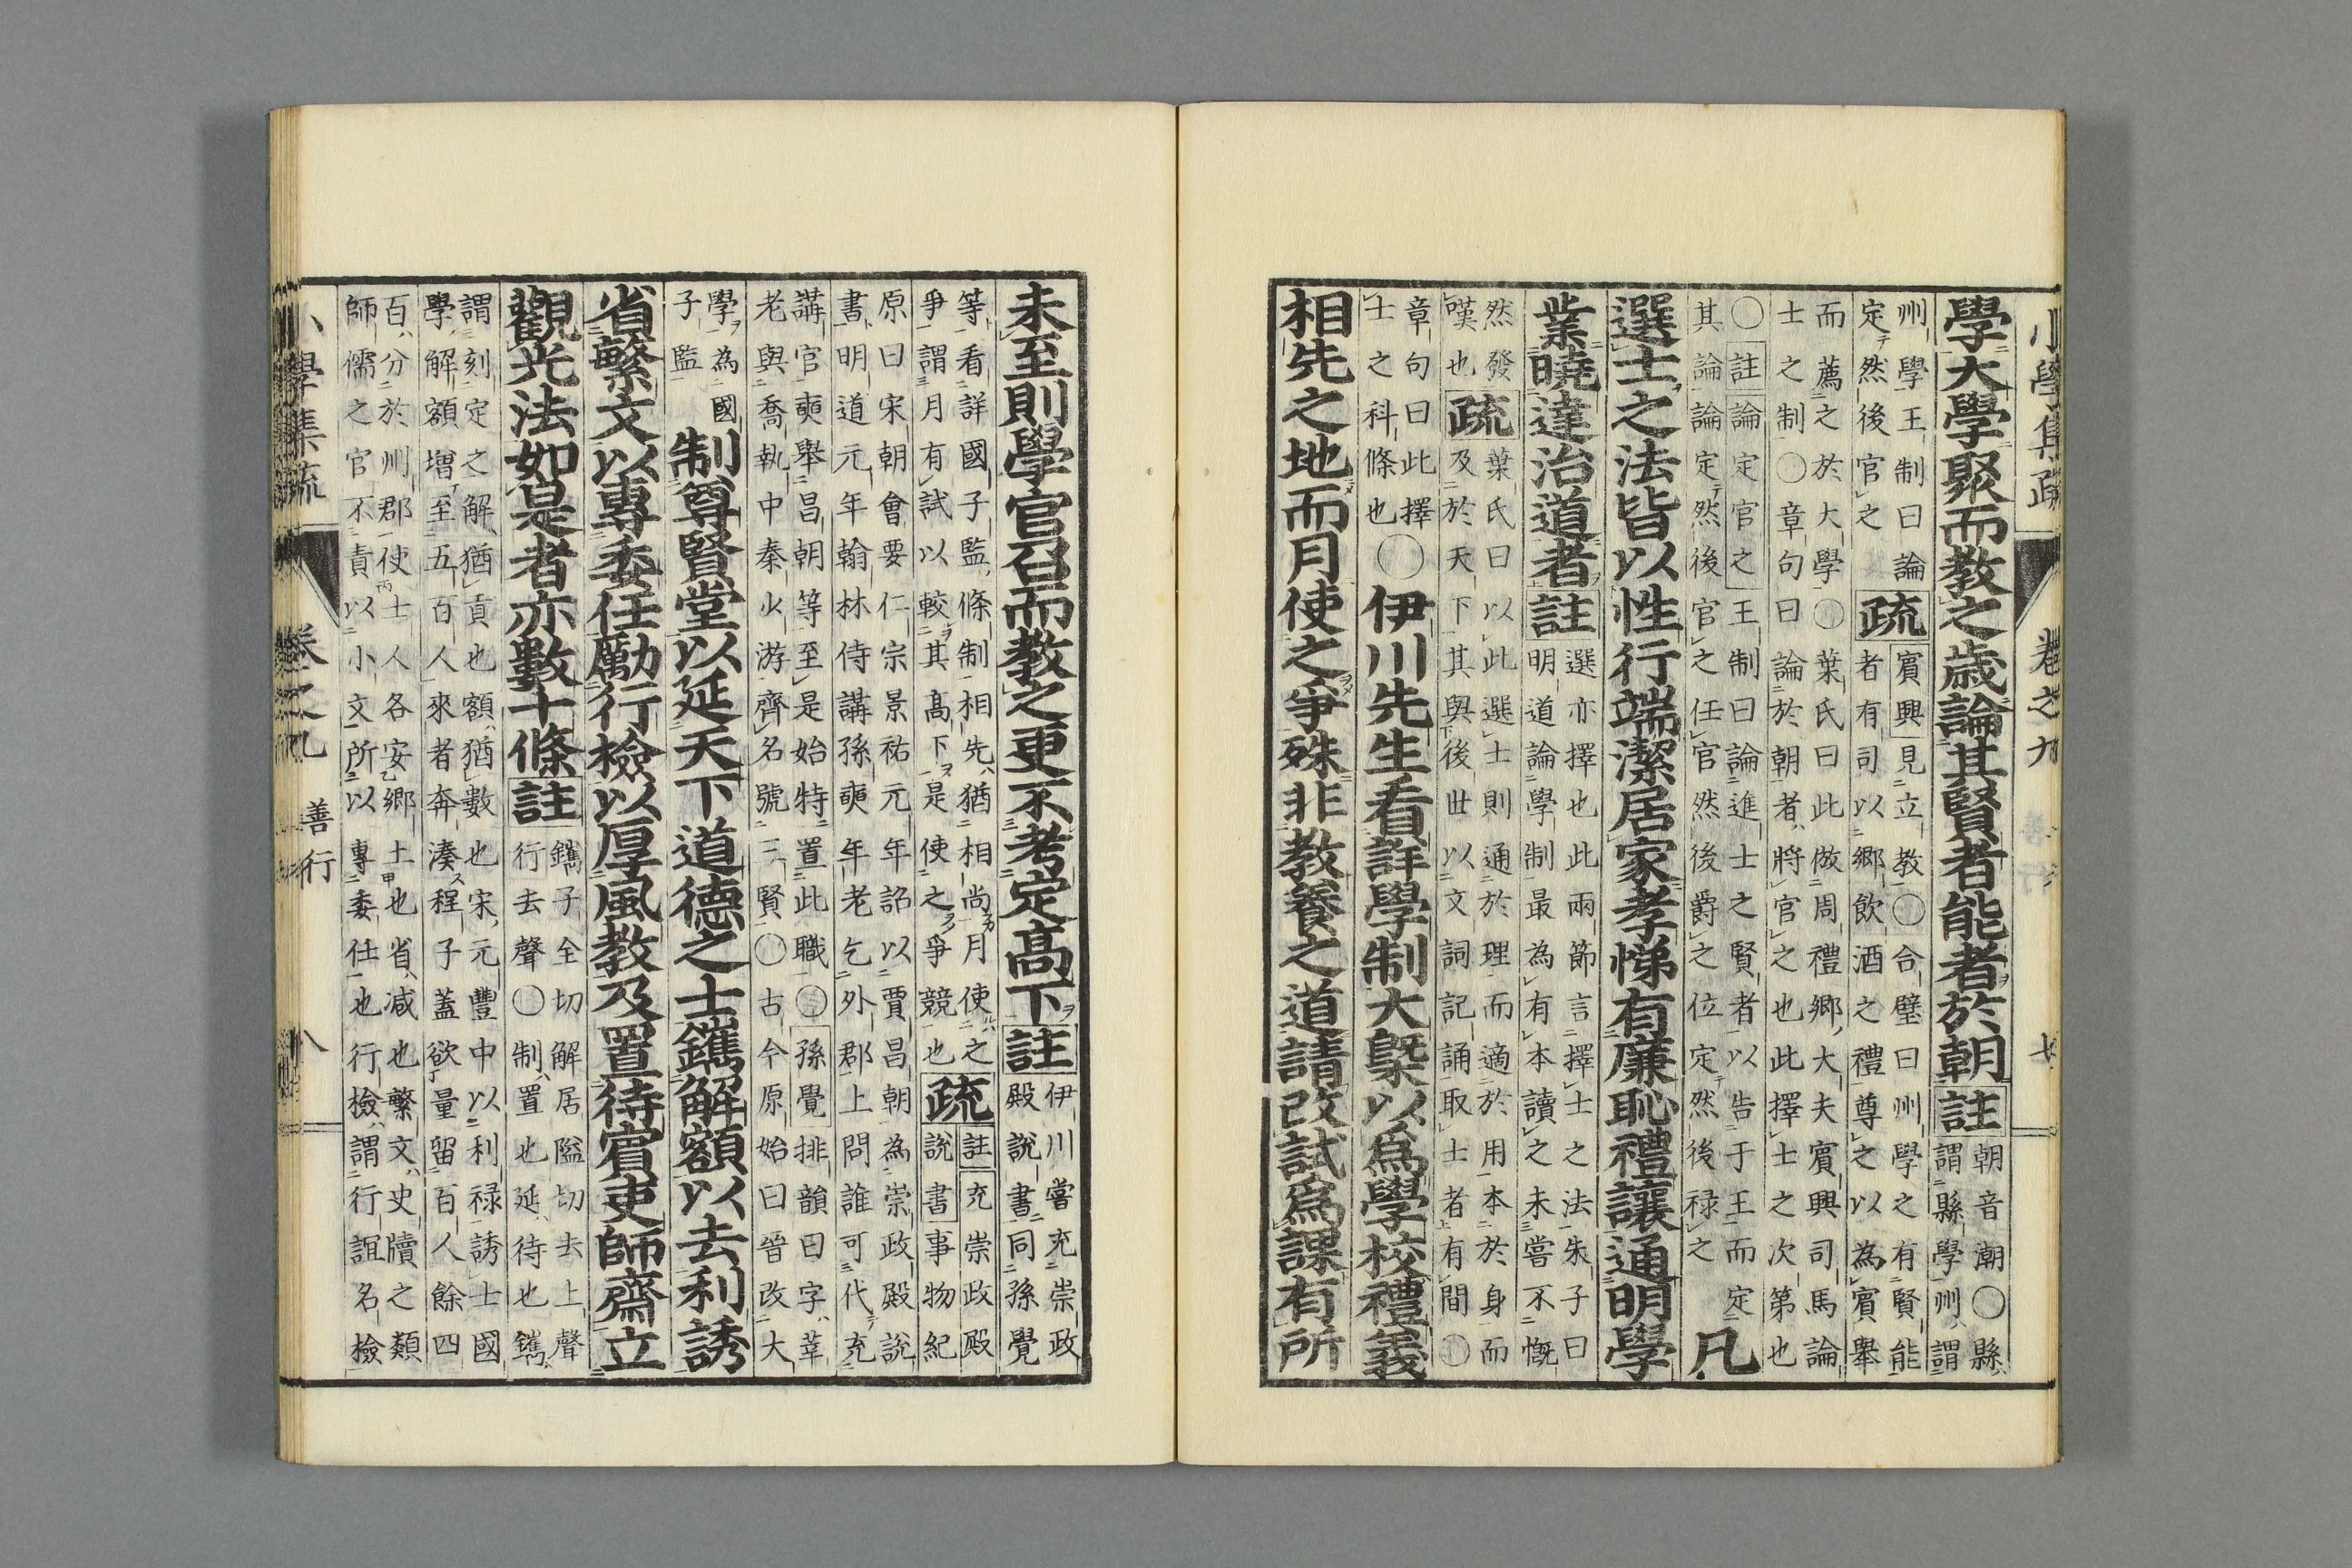 小學集疏 卷之九 七
學大學聚而教之歳論其賢者能者於朝註朝音潮○縣
謂縣學州謂
州學王制曰論疏賓興見立教○合璧曰州學之有賢能
定然後官之者有司以郷飲酒之禮尊之以為賓舉
而薦之於大學○葉氏曰此倣周禮郷大夫賓興司馬論
士之制○章句曰論於朝者將官之也此擇士之次第也
○註論定官之王制曰論進士之賢者以告于王而定
其論論定然後官之任官然後爵之位定然後禄之凡
選士之法皆以性行端潔居家孝悌有廉恥禮讓通明學
業曉達治道者註選亦擇也此兩節言擇士之法朱子曰
明道論學制最為有本讀之未嘗不慨
然發疏葉氏曰以此選士則通於理而適於用本於身而
嘆也及於天下其與後世以文詞記誦取士者有間○
章句曰此擇
士之科條也○伊川先生看詳學制大槩以為學校禮義
相先之地而月使之爭殊非教養之道請改試為課有所
未至則學官召而教之更不考定高下註伊川嘗充崇政
殿說書同孫覺
等看詳國子監條制相先猶相尚月使之疏註充崇政殿
爭謂月有試以較其高下是使之爭競也說書事物紀
原曰宋朝會要仁宗景祐元年詔以賈昌朝為崇政殿說
書明道元年翰林侍講孫奭年老乞外郡上問誰可代充
講官奭舉昌朝等至是始特置此職○孫覺排韻曰字莘
老與喬執中秦少游齊名號三賢○古今原始曰晉改大
學為國
子監制尊賢堂以延天下道德之士鐫解額以去利誘
省繁文以專委任勵行檢以厚風教及置待賓吏師齋立
觀光法如是者亦數十條註鐫子全切解居隘切去上聲
行去聲○制置也延待也鐫
謂刻定之解猶貢也額猶數也宋元豐中以利禄誘士國
學解額增至五百人來者奔湊程子蓋欲量留百人餘四
百分於州郡使士人各安郷土也省減也繁文史牘之類
師儒之官不責以小文所以專委任也行檢謂行誼名檢
小學集疏 卷之九 善行 八